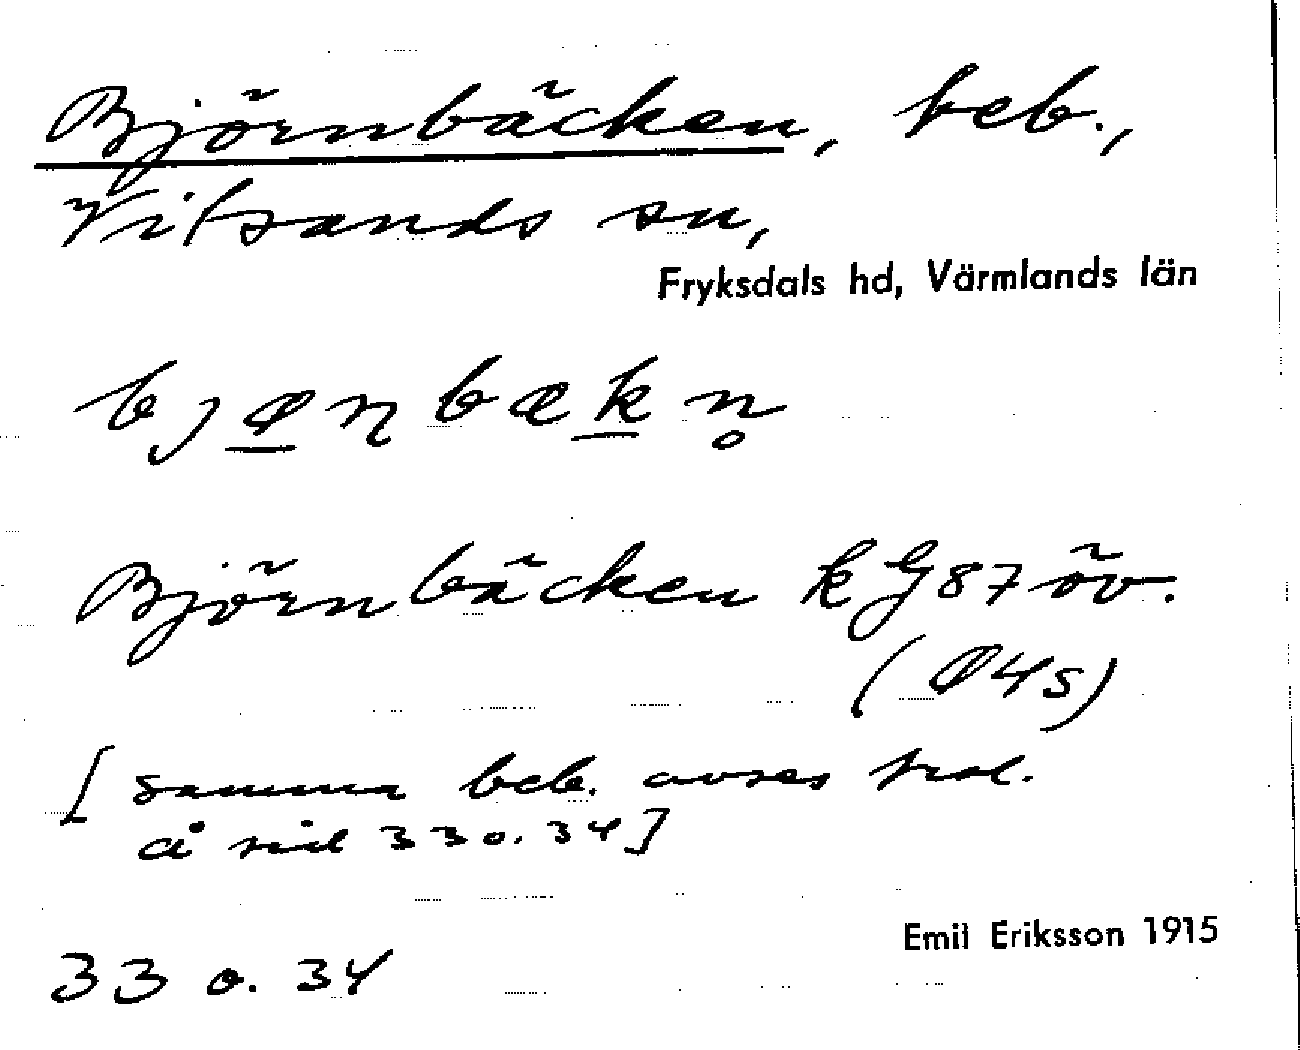 Björnbäcken, beb.,
Vitsands sn,
Fryksdals hd, Värmlands län
bjønbækn̥
Björnbäcken kG87 öv.
(Ø4s)
[samma beb. avses trol.
å sid 33 o. 34]
Emil Eriksson 1915
33 o. 34